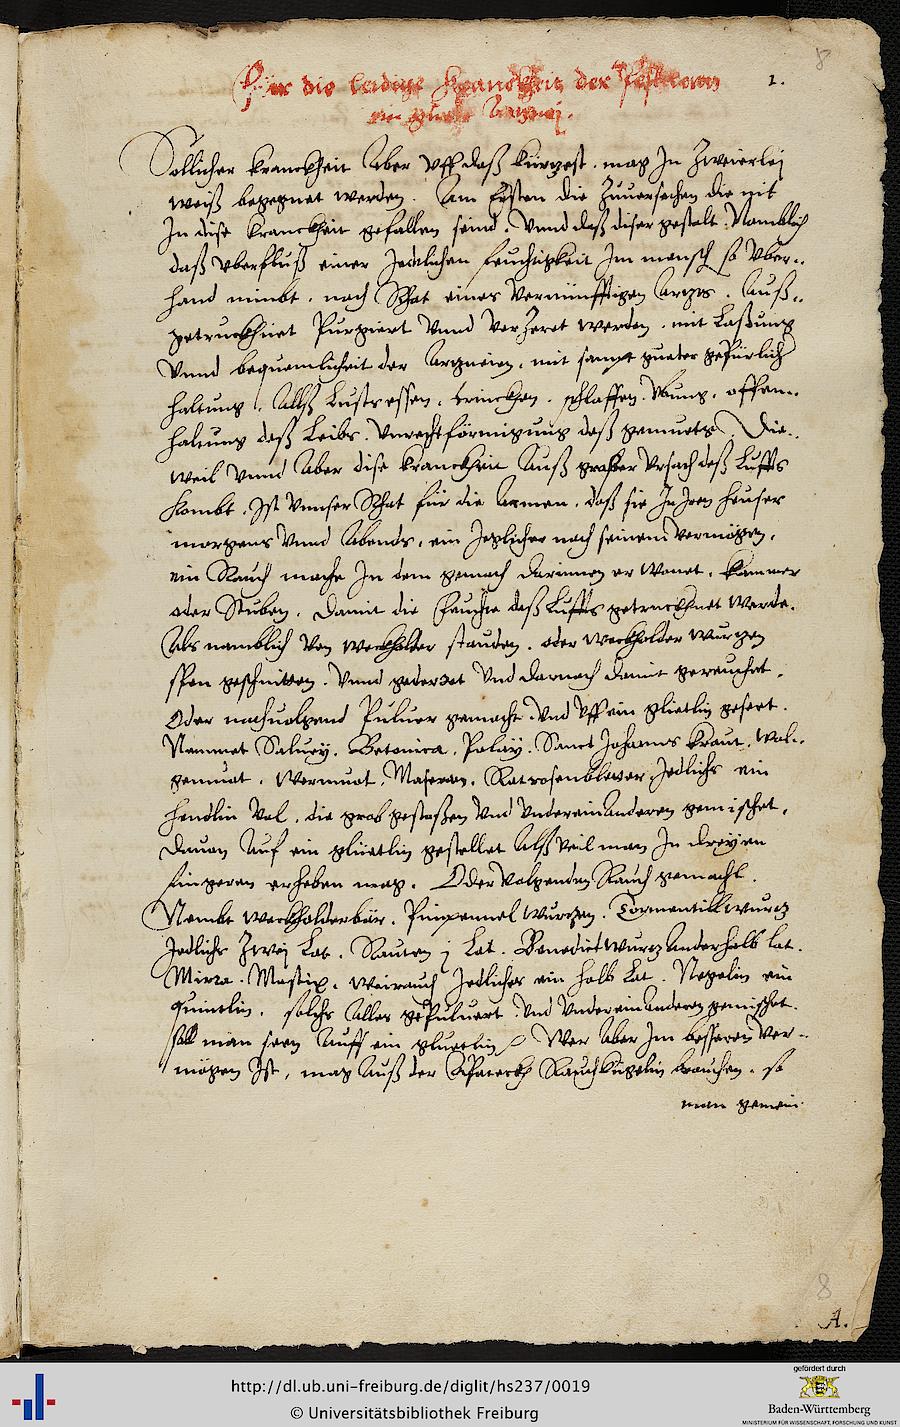 8
Für die leidige Kranckheit der Pestelentz 1.
ein guete Artznej.
Sollicher kranckheit Aber vff daß kürtzest . mag In Zweierlej
weiß begegnet werden . Am Ersten die Zuuersechen die nit
In dise kranckheit gefallen seind . Vnnd daß diser gestalt . Namblich
daß vberfluß einer Jedlichen feuchtigkeit Im mensch so vber-
hand nimbt . nach Rhat eines Vernünfftigen Artzts . Auß-
getruckhnet Purgiert Vnnd Verzeret werden . mit Laßung
Vnnd bequemlicheit der Artzneien, mit sampt gueter gepürlich
haltung . Allß Lusts essen . trinckhen . schlaffen . Vbung . offen-
haltung deß Leibs . Vnrechtförmigung deß gemuets . Die-
weil Vnnd Aber dise kranckheit Auß grosser Vrsach deß Luffts
kombt . Ist Vnnser Rhat für die Armen . daß sie In Jren heuser
morgens Vnnd Abends, ein Jeglicher nach seinem Vermögen,
ein Rauch mache In dem gemach darinnen er Wonet . kammer
oder Stuben . damit die Feuchte deß Luffts getruckhnet werde.
Als namblich Von Weckholder stauden . oder Weckholder wurtzen
span geschnitten . Vnnd gederret Vnd darnach damit gereuchet .
Oder nachuolgend Puluer gemacht Vnd Vff ein glietlin geseet .
Nemmet Saluey . Betonica . Poley . Sanct Johanns kraut . Wol-
gemuat . Wermuat . Maseron . Rotrosenbletter . Jedlichs ein
hendlin Vol . die grob gestossen Vnd Vndereinanderen gemischet .
dauon Auf ein glüetlin gestellet Alß Veil man In dreyen
fingeren erheben mag . Oder Volgenden Rauch gemacht .
Nembt Weckholderbör . Pimpennel Wurtzen . Tormentill wurtz
Jedlichs Zwej Lot . Rauten j Lot . Benedict wurtz Anderhalb lot .
Mirra . Mastix . Weirauch Jedliches ein halb Lot . Negelin ein
quintlin . solchs Alles gepuluert Vnd Vndereinanderen gemischet .
soll man seen Auff ein gluetlin . Wer Aber Im besseren Ver-
mögen Ist, mag Auß der Apateckh Rauchkügelin brauchen . so
man gemein
8
A.
http://dl.ub.uni-freiburg.de/diglit/hs237/0019
© Universitätsbibliothek Freiburg
gefördert durch
Baden-Württemberg
MINISTERIUM FÜR WISSENSCHAFT, FORSCHUNG UND KUNST